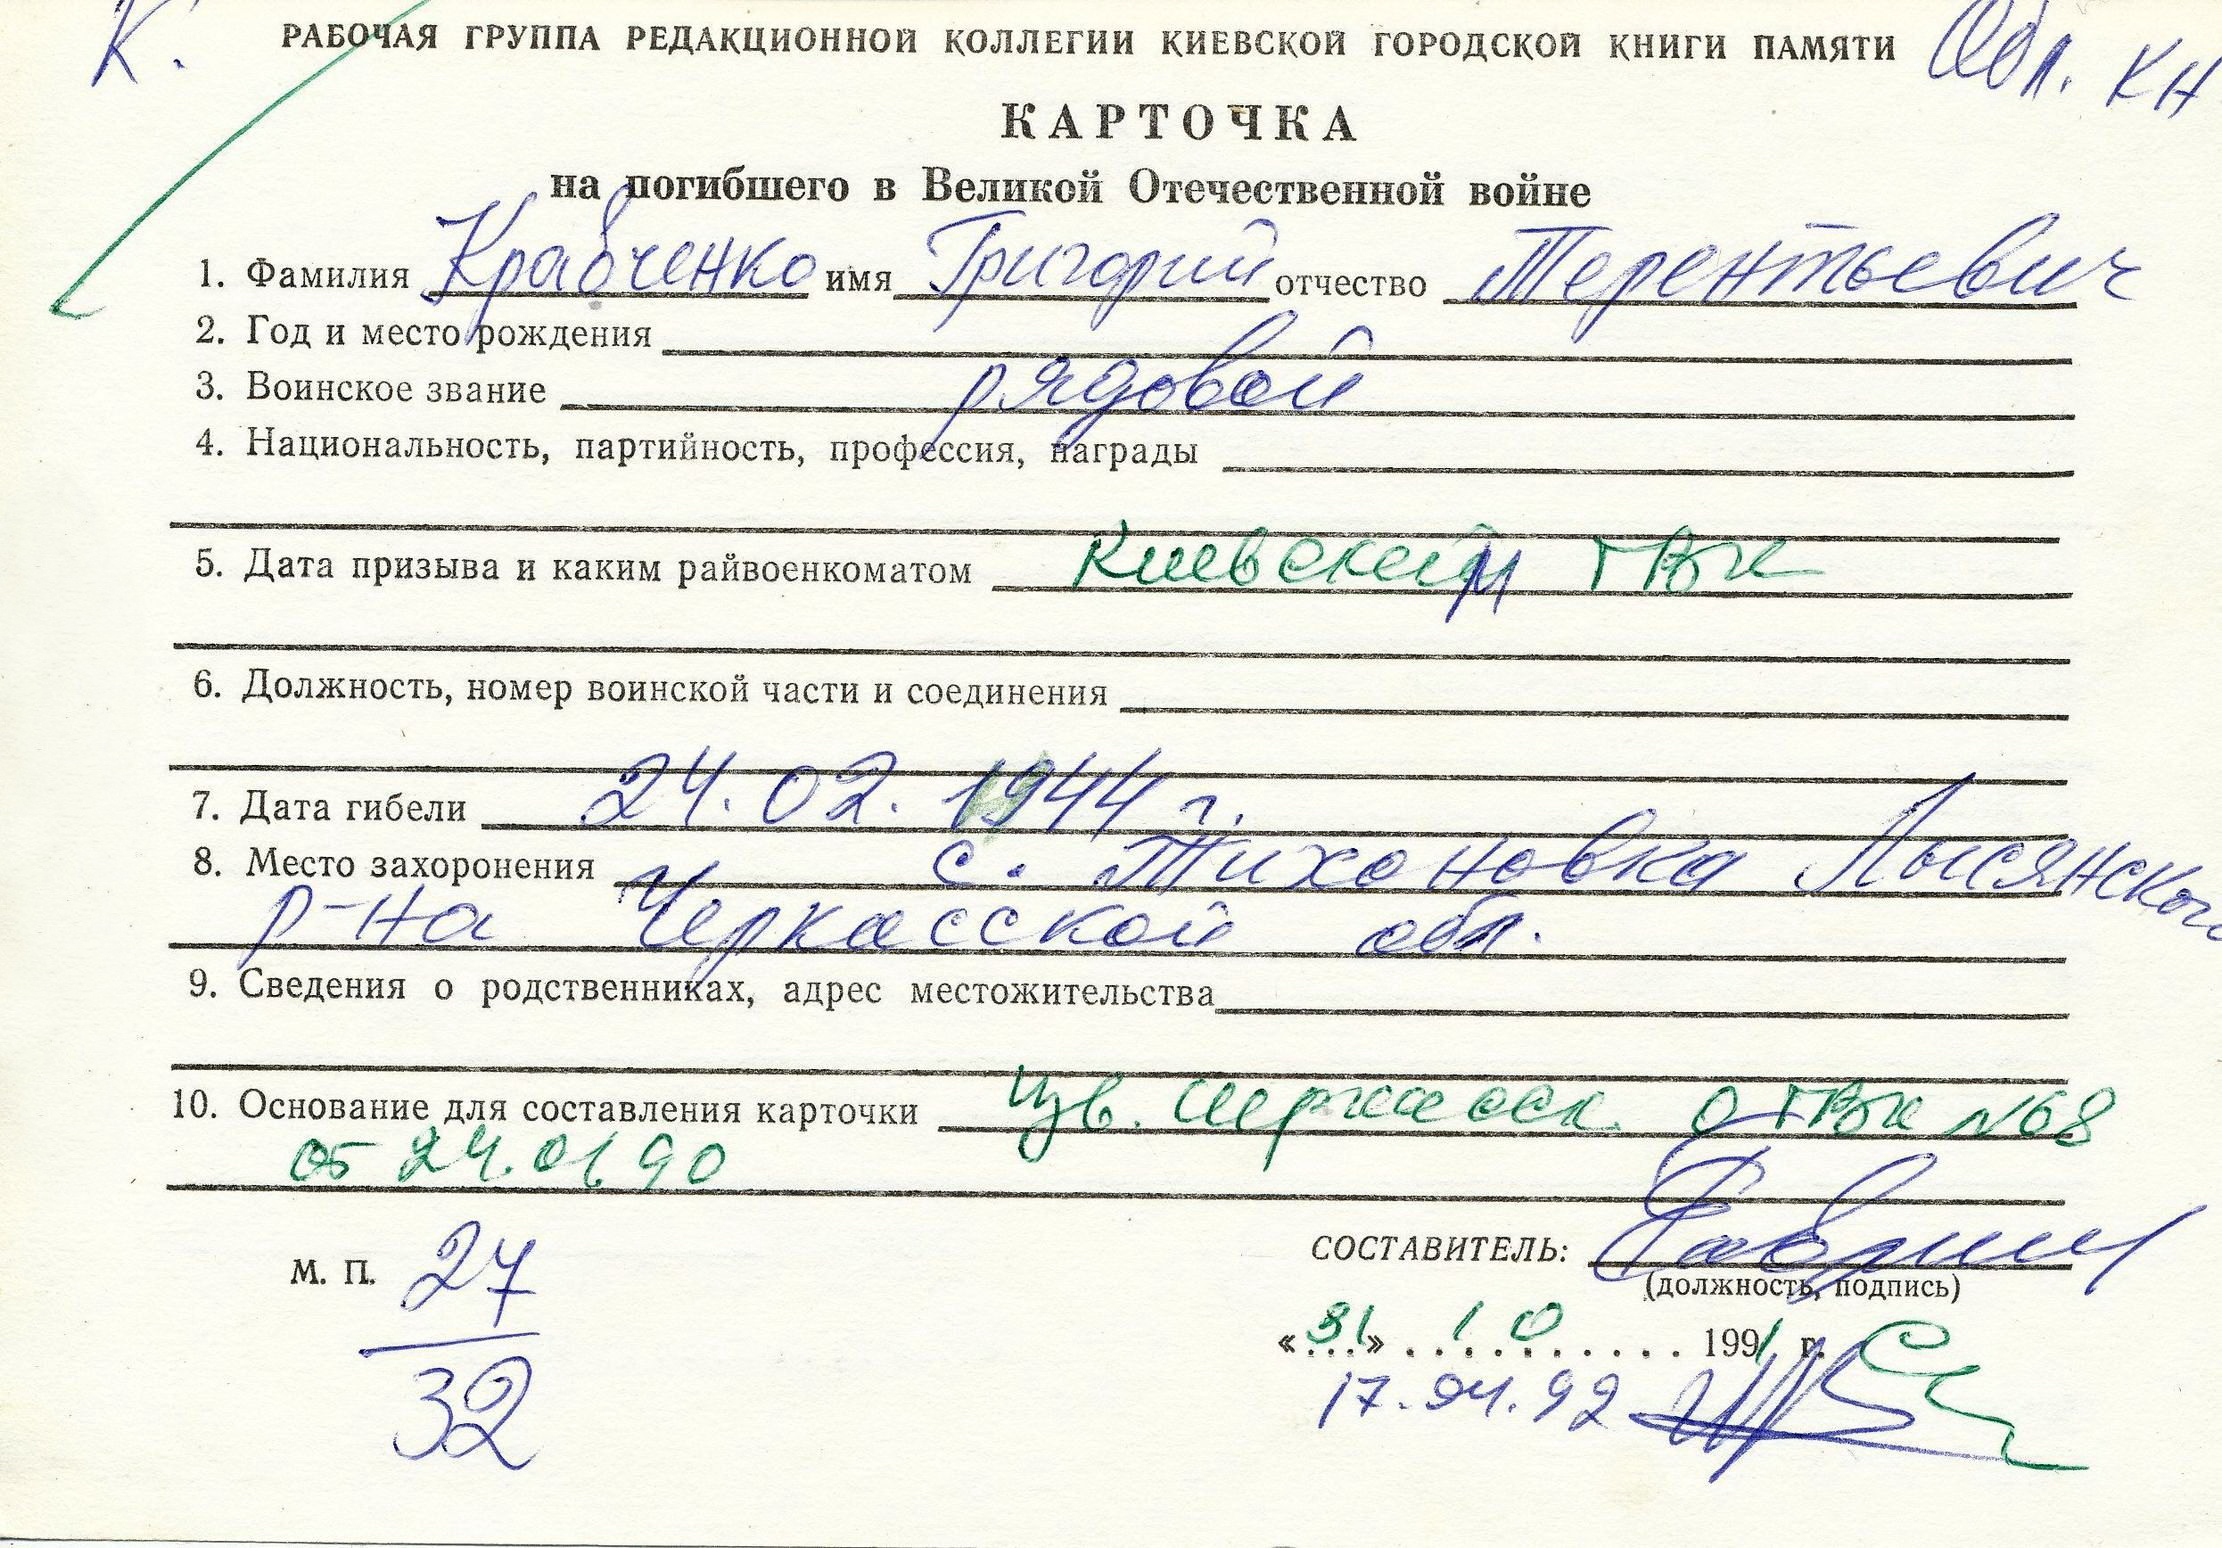 К.
РАБОЧАЯ ГРУППА РЕДАКЦИОННОЙ КОЛЛЕГИИ КИЕВСКОЙ ГОРОДСКОЙ КНИГИ ПАМЯТИ Обл. КН
КАРТОЧКА
на погибшего в Великой Отечественной войне
1. Фамилия Кравченко имя Григорий отчество Терентьевич
2. Год и место рождения
3. Воинское звание рядовой
4. Национальность, партийность, профессия, награды
5. Дата призыва и каким райвоенкоматом Киевским ГВК
6. Должность, номер воинской части и соединения
7. Дата гибели 24.02.1944 г.
8. Место захоронения с. Тихоновка Лысянского
р-на Черкасской обл.
9. Сведения о родственниках, адрес местожительства
10. Основание для составления карточки Изв. Черкасск. ОГВК №68
от 24.01.90
М. П. 27
32
СОСТАВИТЕЛЬ:
(должность, подпись)
«31» 10 1991 г.
17.04.92